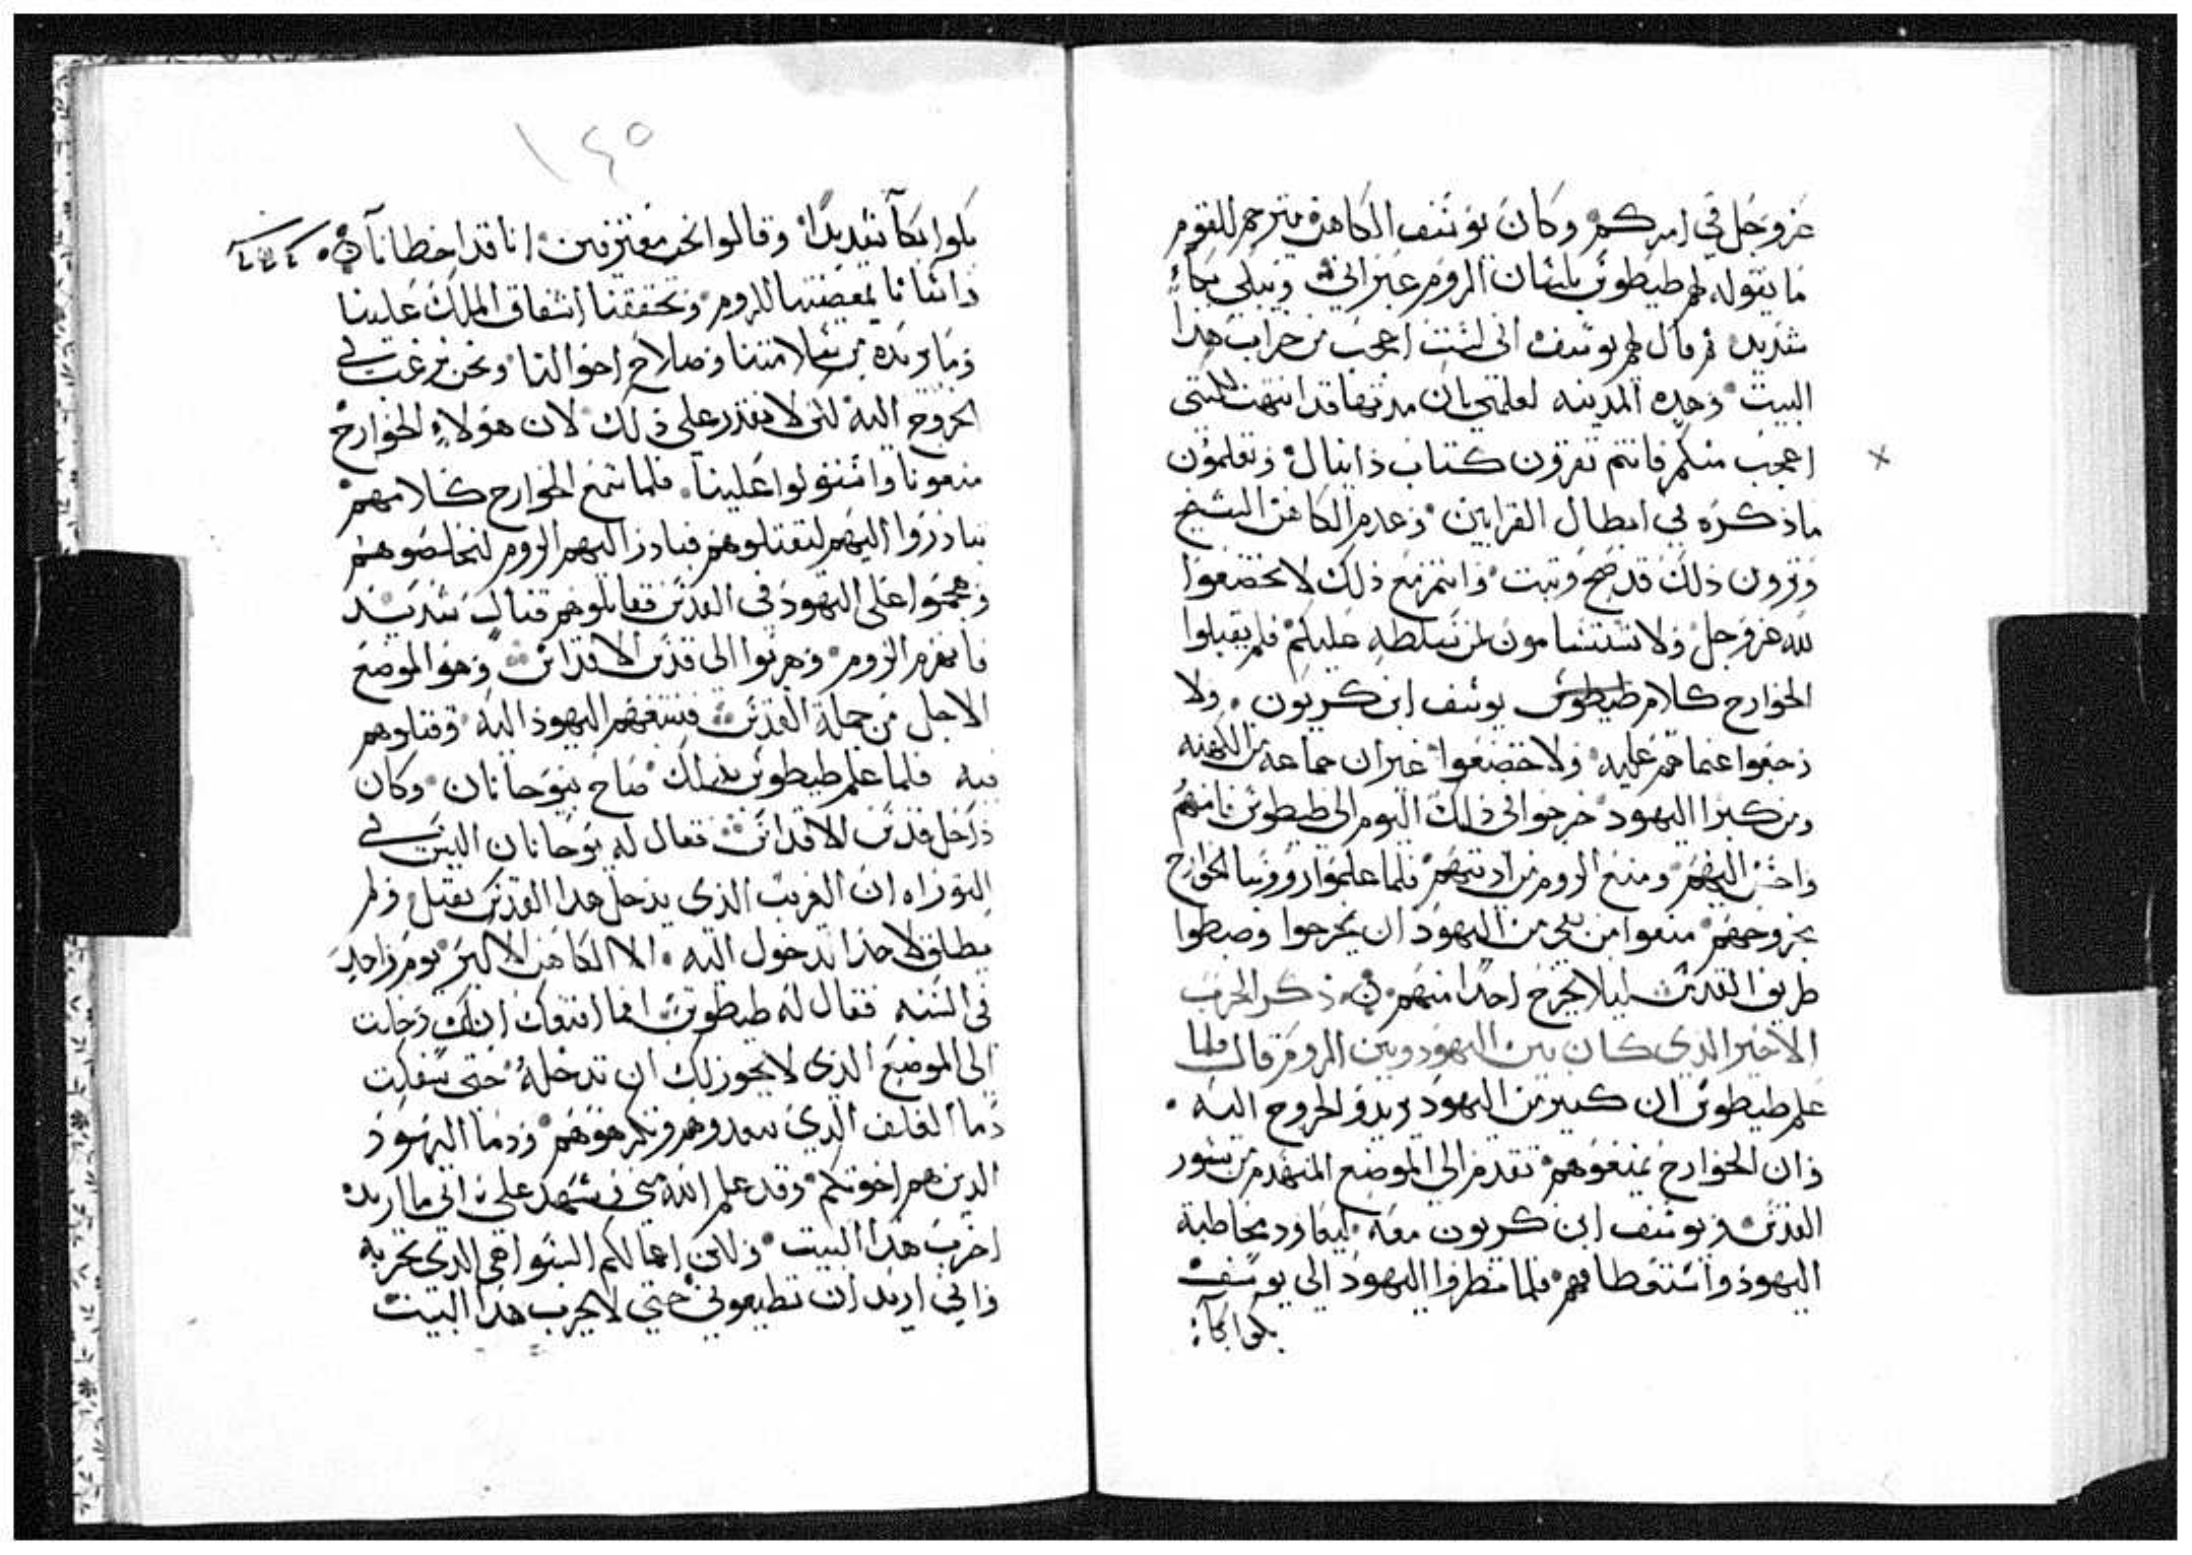 عز وجل في امركم وكان يوسف الكاهن يترجم للقوم
ما يقوله لهم طيطوس بلسان الروم عبراني ويبكي بكاءً
شديد ثم قال لهم يوسف اني لست اعجب من خراب هذا
البيت وهذه المدينه لعلمي بان مدتها قد انتهت لكنني
اعجب منكم فانتم تقرون كتاب دانيال وتعلمون
ما ذكره في ابطال القرابين وعدم الكاهن المسيح
وترون ذلك قد صح وثبت وانتم مع ذلك لا تخضعوا
لله عز وجل ولا تستسامون لمن سلطه عليكم فلم يقبلوا
الخوارج كلام طيطوس يوسف ابن كريون ولا
رجعوا عما هم عليه ولا خضعوا غير ان جماعه من الكهنه
ومن كبرا اليهود خرجوا في ذلك اليوم الى طيطوس فامنهم
واحسن اليهم ومنع الروم من اديتهم فلما علموا روسا الخوارج
بخروجهم منعوا من بقي من اليهود ان يخرجوا وضبطوا
طريق القدس ليلا يخرج احدا منهم ذكر الحرب
الاخير الذي كان بين اليهود وبين الروم قال فلما
علم طيطوس ان كثير من اليهود يريدو الخروج اليه
وان الخوارج يمنعوهم تقدم الى الموضع المنهدم من سور
القدس ويوسف ابن كريون معه ليعاود مخاطبة
اليهود واستعطافهم فلما نظروا اليهود الى يوسف
بكوا بكآ
١٤٥
بكوا بكآ شديدًا وقالوا نحن معترفين اننا قد اخطانا
واسانا بمعصيتنا للروم وتحققنا اشفاق الملك علينا
وما يريده من سلامتنا وصلاح احوالنا ونحن نرغب في
الخروج اليه لكن لا نقدر على ذلك لان هولاء الخوارج
منعونا واستولوا علينا فلما سمع الخوارج كلامهم
تبادروا اليهم ليقتلوهم فبادر اليهم الروم ليخلصوهم
وهجموا على اليهود في القدس فقاتلوهم قتال شديد
فانهزم الروم وهربوا الى قدس الاقداس وهو الموضع
الاجل من جملة القدس فتبعهم اليهود اليه وقتلوهم
فيه فلما علم طيطوس بذلك صاح بيوحانان وكان
داخل قدس الاقداس فقال له يوحانان اليس في
التوراه ان الغريب الذي يدخل هذا القدس يقتل ولم
يطلق لاحد الدخول اليه الا الكاهن الاكبر يوم واحد
في السنه فقال له طيطوس اما انت انك دخلت
الى الموضع الذي لا يجوز لك ان تدخله حتى سفكت
دما القلف الذي وتكرهوهم ودما اليهود
الذين هم اخوتكم وقد علم الله ويشهد علي اني ما اريد
اخرب هذا البيت ولكن اعمالكم السو هي الذي تخربه
واني اريد ان تطيعوني حتى لا يخرب هذا البيت